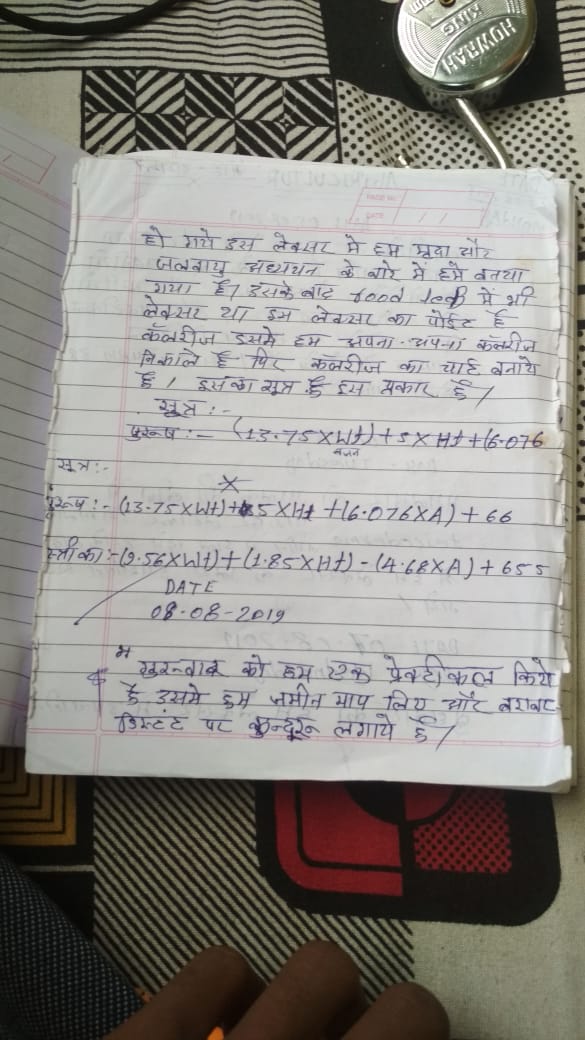 HOWRAH
KING
PAGE NO.
DATE / /
हो गये इस लेक्सर मे हम मृदा और
जलवायु अध्ययन के बारे में हमे बतया
गया है। इसके बाद food में भी
लेक्सर था इस लेक्सर का पोईंट है
कॅलरीज इसमे हम अपना-अपना कॅलरीज
निकाले है फिर कॅलरीज का चार्ट बनाये
है। इसका सूत्र है इस प्रकार है।
सूत्र:-
पुरूष:- (13.75XWt)+5XHt+(6.076
वजन
सूत्र:-
पुरूष:- (13.75XWt)+5XHt +(6.076XA)+66
स्त्री का:-(9.56XWt)+(1.85XHt)-(4.68XA)+655
DATE
08-08-2019
गुरूवार को हम एक प्रेक्टीकल किये
है इसमे हम जमीन माप लिए और बराबर
डिस्टेंट पर कुन्दरू लगाये है।